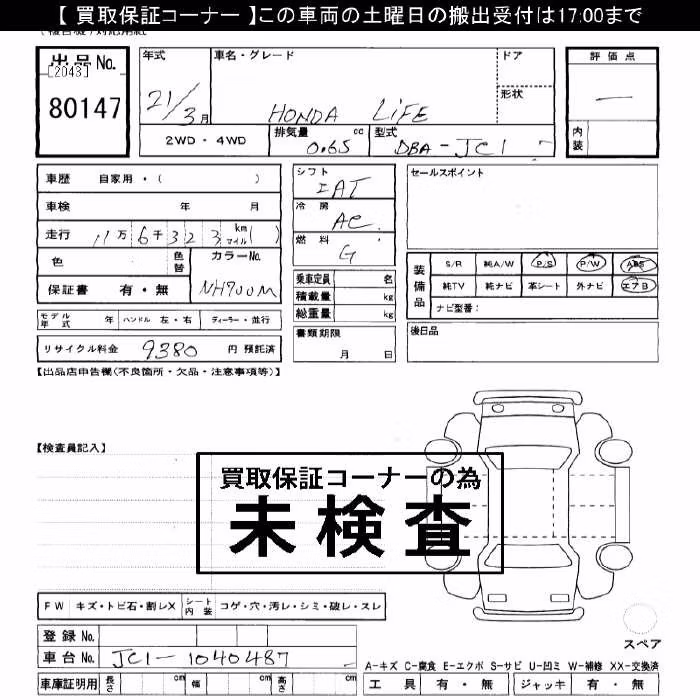 【 買取保証コーナー 】この車両の土曜日の搬出受付は17:00まで
出品 No.
[2043]
80147
年式 車名・グレード ドア
21/3月 HONDA LiFE 形状
2WD・4WD 排気量 cc 型式
0.65 DBA-JC1
評価点
内装
車歴 自家用・( )
車検 年 月
走行 11万 6千 3 2 3 km マイル ( )
色 色替 カラーNo.
保証書 有・無 NH700M
シフト
IAT
冷房
AC
燃料
G
セールスポイント
装備品
S/R 純A/W P/S P/W ABS
純TV 純ナビ 革シート 外ナビ エアB
ナビ型番:
乗車定員 名
積載量 kg
総重量 kg
書類期限
月 日
後日品
モデル年式 年 ハンドル 左・右 ディーラー・並行
リサイクル料金 9380 円 預託済
【出品店申告欄(不良箇所・欠品・注意事項等)】
【検査員記入】
買取保証コーナーの為
未検査
FW キズ・トビ石・割レX シート内装 コゲ・穴・汚レ・シミ・破レ・スレ
登録 No.
車台 No. JC1-1040487
車庫証明用 長さ cm 幅 cm 高さ cm
スペア
A-キズ C-腐食 E-エクボ S-サビ U-凹ミ W-補修 XX-交換済
工具 有・無 ジャッキ 有・無